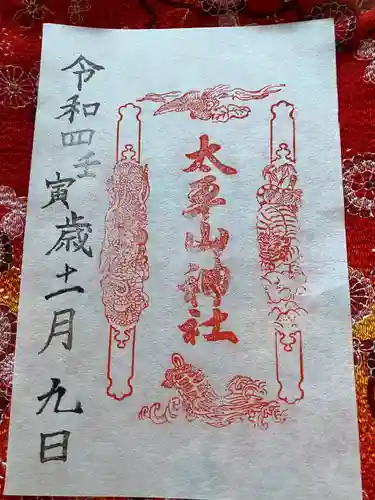 太平山神社
令和四壬寅歳十二月九日